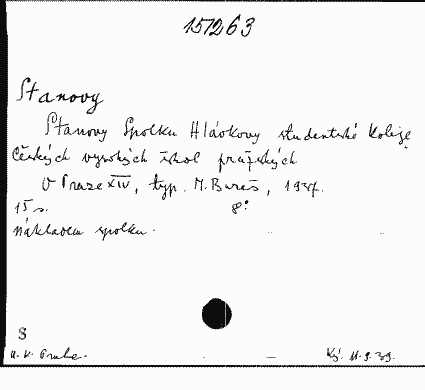 157263
Stanovy
Stanovy Spolku Hlávkovy studentské koleje
českých vysokých škol pražských
V Praze XIV, typ. M. Bureš, 1937.
15 s. 8°
nákladem spolku.
S
U. K. Praha.